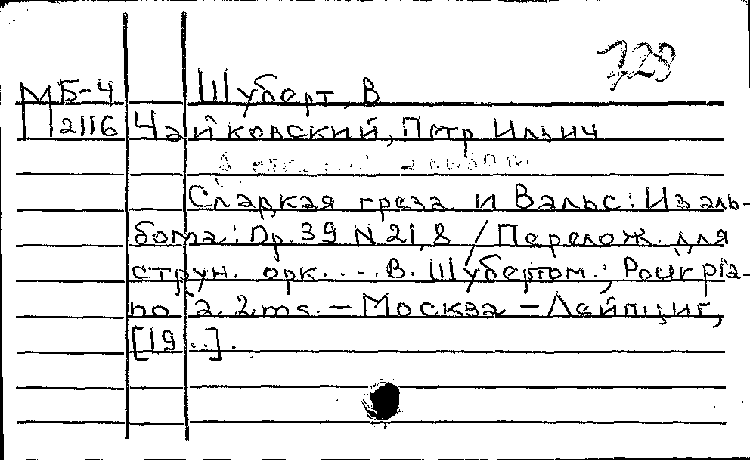 728
МБ-4 Шуберт, В
2116 Чайковский, Петр Ильич
Сладкая греза и Вальс: Из аль-
бома: Op. 39 N 21, 8 / Перелож. для
струн. орк. ... В. Шубертом.; Pour pia-
no à 2 ms. – Москва – Лейпциг,
[19..].